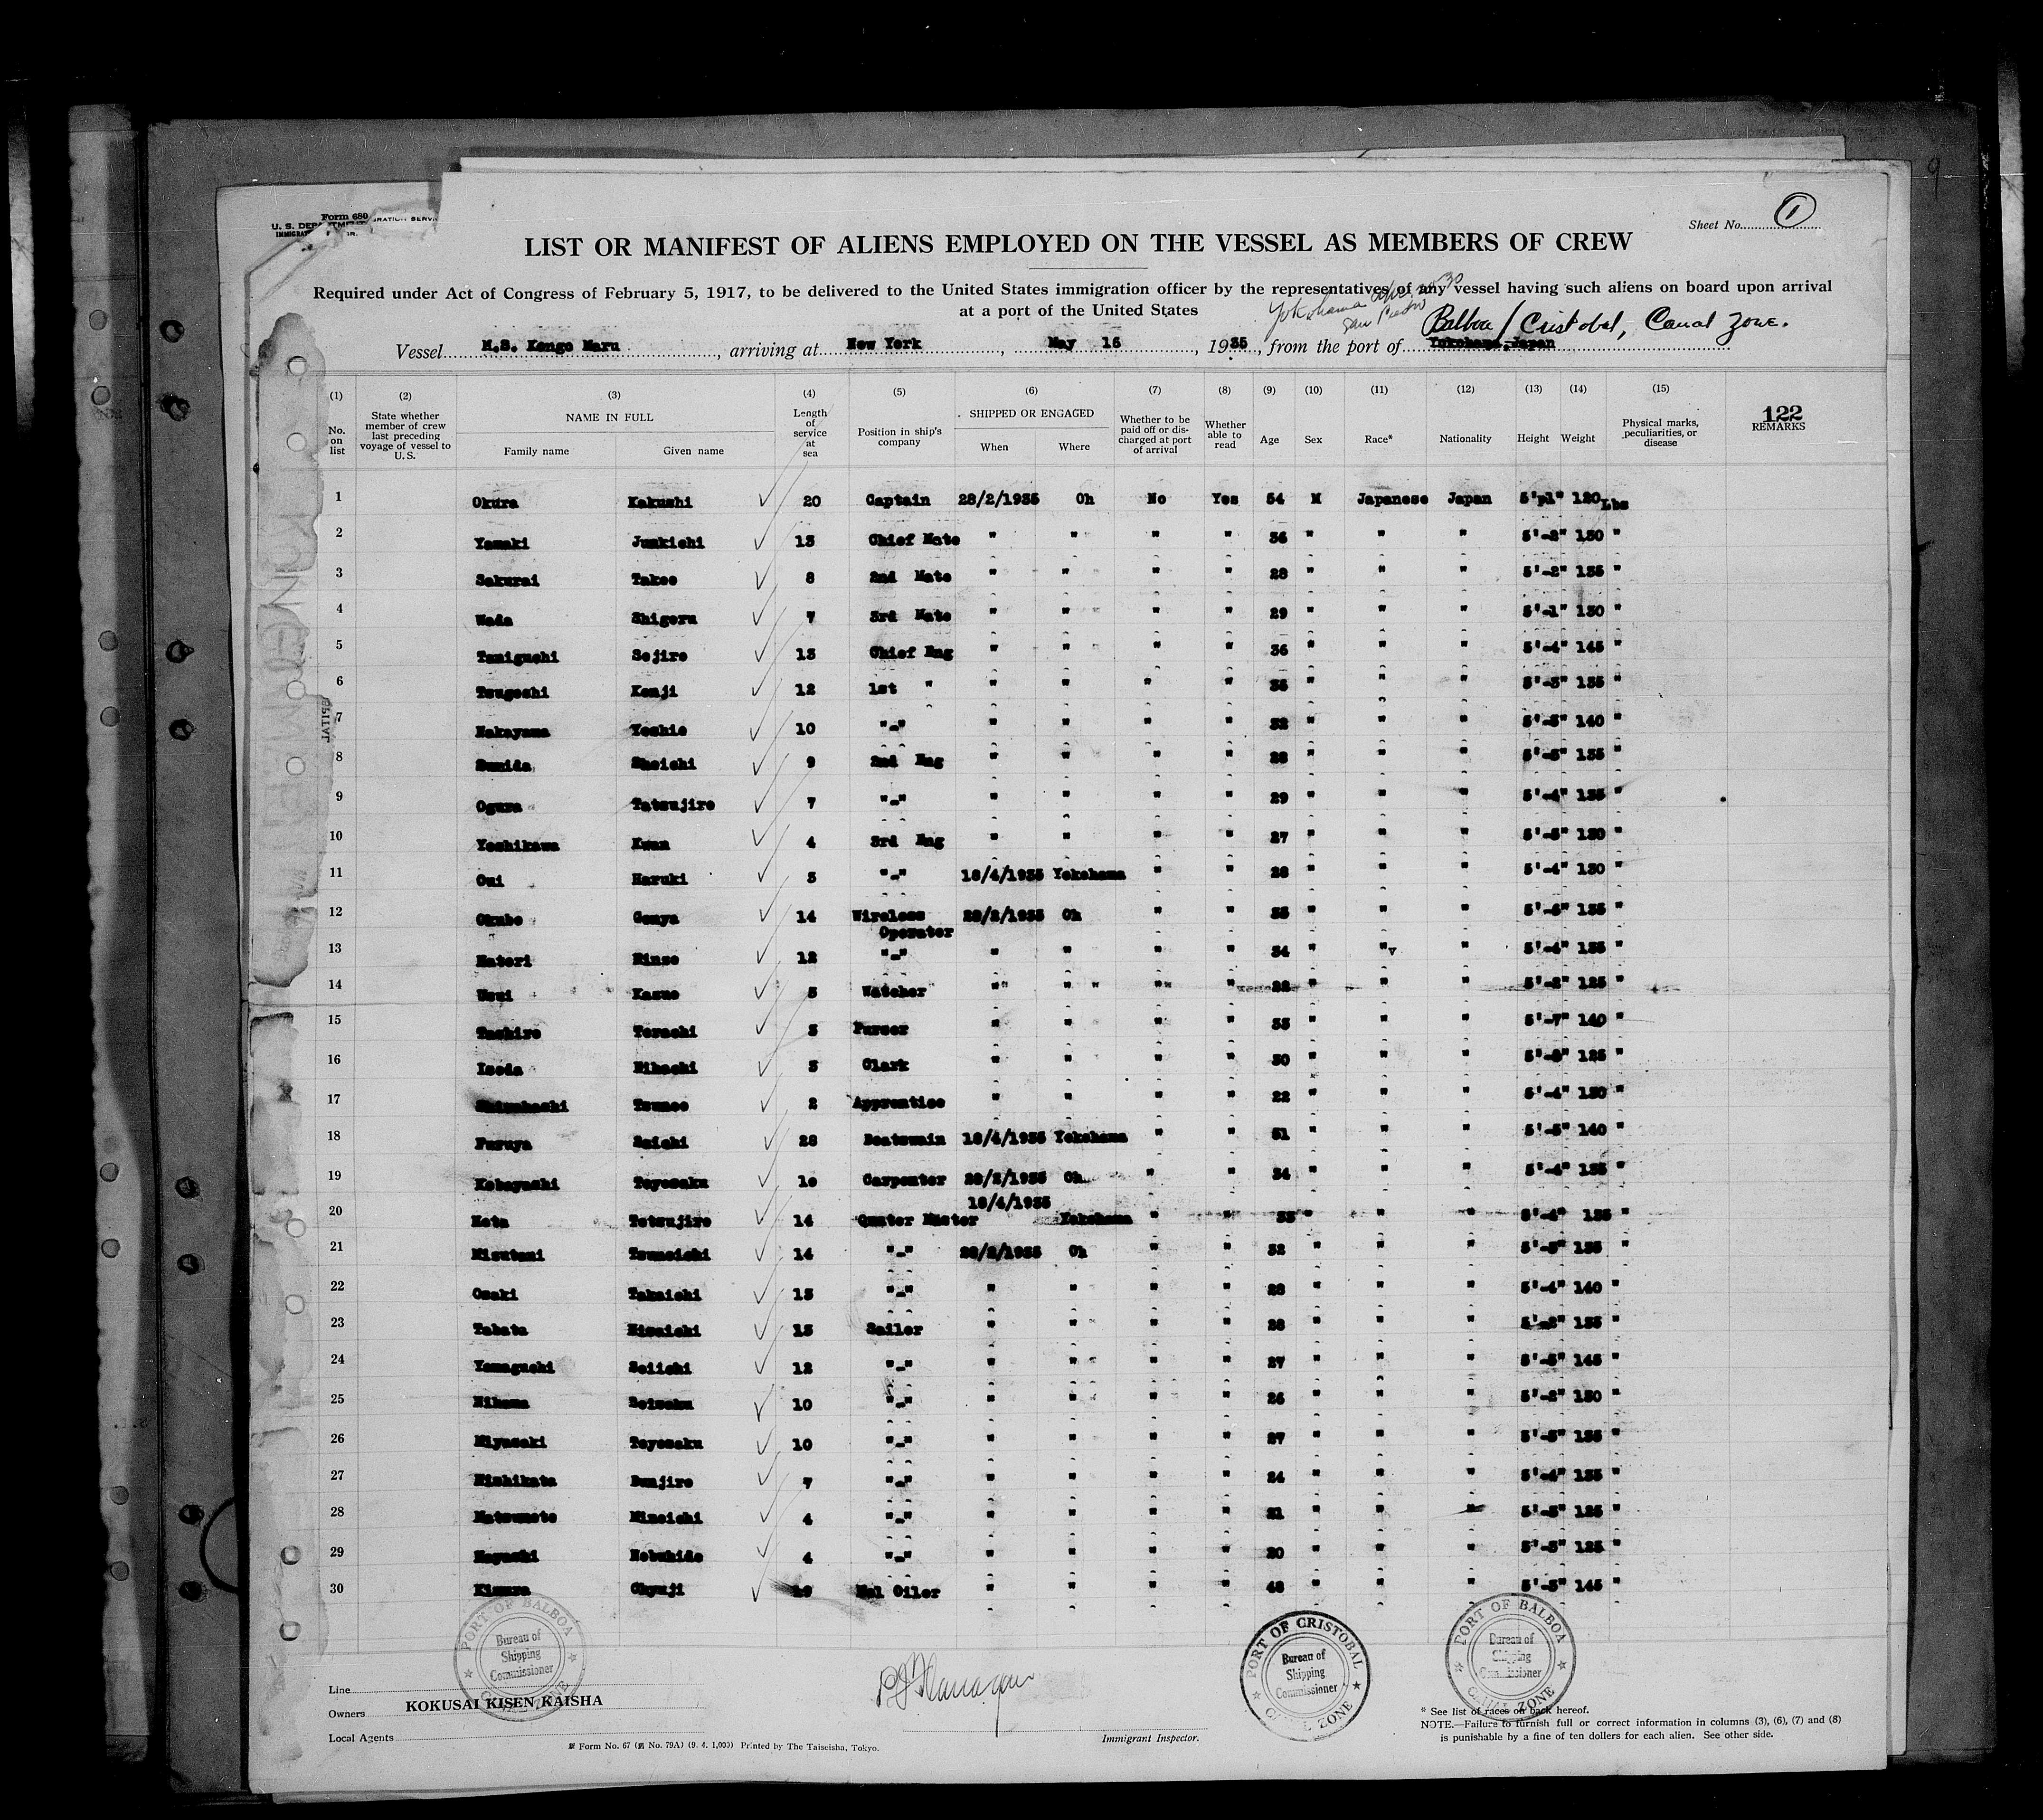 Form 680
U. S. DEP
IMMIGRAT
GRATION SERV
Sheet No. 1
LIST OR MANIFEST OF ALIENS EMPLOYED ON THE VESSEL AS MEMBERS OF CREW
Required under Act of Congress of February 5, 1917, to be delivered to the United States immigration officer by the representatives of any vessel having such aliens on board upon arrival
at a port of the United States
Yokohama
San Pedro
Balboa / Cristobal, Canal Zone.
Vessel M.S. Kongo Maru, arriving at New York, May 15, 1935, from the port of Yokohama, Japan
(1) (2) (3) (4) (5) (6) (7) (8) (9) (10) (11) (12) (13) (14) (15)
No. on list State whether member of crew last preceding voyage of vessel to U. S. NAME IN FULL Family name Given name Length of service at sea Position in ship's company SHIPPED OR ENGAGED When Where Whether to be paid off or discharged at port of arrival Whether able to read Age Sex Race* Nationality Height Weight Physical marks, peculiarities, or disease 122 REMARKS
1 Okura Kakushi 20 Captain 28/2/1935 Oh No Yes 54 M Japanese Japan 120 Lbs
2 Yamaki Junkichi 13 Chief Mate " " " " 36 " " " 5'-2" 130 "
3 Sakurai Takeo 8 2nd Mate " " " " 28 " " " 5'-2" 135 "
4 Wada Shigeru 7 3rd Mate " " " " 29 " " " 5'-1" 130 "
5 Taniguchi Sojiro 13 Chief Eng " " " " 36 " " " 5'-4" 145 "
6 Tsugoshi Kenji 12 1st " " " " " 35 " " " 5'-3" 135 "
7 Nakayama Yoshio 10 "-" " " " " 32 " " " 5'-3" 140 "
8 Sumida Shoichi 9 2nd Eng " " " " 28 " " " 5'-3" 135 "
9 Ogura Tatsujiro 7 "-" " " " " 29 " " " 5'-4" 135 "
10 Yoshikawa Kwan 4 3rd Eng " " " " 27 " " " 5'-5" 120 "
11 Oui Haruki 3 "-" 18/4/1935 Yokohama " " 28 " " " 5'-4" 130 "
12 Okubo Genya 14 Wireless Operator 28/2/1935 Oh " " 35 " " " 135 "
13 Hatori Rinzo 12 "-" " " " " 34 " " " 5'-4" 135 "
14 Usui Kazuo Watcher " " " " 22 " " " 5'-2" 125 "
15 Tashiro 3 Purser " " " " 33 " " " 5'-7" 140 "
16 Isoda 3 Clark " " " " 30 " " " 125 "
17 Tsuneo 2 Apprentice " " " " 22 " " " 5'-4" 130 "
18 Furuya Saichi 28 Boatswain 18/4/1935 Yokohama " " 51 " " " 5'-5" 140 "
19 Kobayashi Toyosaku 10 Carpenter 28/2/1935 Oh " " 34 " " " 5'-4" 135 "
20 Tetsujiro 14 Quater Master 18/4/1935 Yokohama " " 33 " " " 5'-4" 135 "
21 Misutani Tsuneichi 14 "-" 28/2/1935 Oh " " 32 " " " 135 "
22 Takaichi 13 "-" " " " " 28 " " " 5'-4" 140 "
23 Tabata Hisaichi Sailor " " " " 28 " " " 135 "
24 Yamaguchi Seiichi 12 "-" " " " " 27 " " " 5'-5" 145 "
25 10 "-" " " " " 26 " " " 5'-2" 130 "
26 Miyasaki Toyosaku 10 "-" " " " " 27 " " " 135 "
27 Nishikata Bunjiro 7 "-" " " " " 24 " " " 5'-4" 135 "
28 Matsumoto Mineichi 4 "-" " " " " 21 " " " 125 "
29 Hayashi Nobuhide 4 "-" " " " " 20 " " " 125 "
30 Kimura Chyuji Oiler " " " " 48 " " " 145 "
PORT OF BALBOA Bureau of Shipping Commissioner CANAL ZONE
PORT OF CRISTOBAL Bureau of Shipping Commissioner CANAL ZONE
PORT OF BALBOA Bureau of Shipping Commissioner CANAL ZONE
Line
Owners KOKUSAI KISEN KAISHA
Local Agents
Form No. 67 (No. 79A) (9. 4. 1,000) Printed by The Taiseisha, Tokyo.
Immigrant Inspector.
* See list of races on back hereof.
NOTE.—Failure to furnish full or correct information in columns (3), (6), (7) and (8)
is punishable by a fine of ten dollars for each alien. See other side.